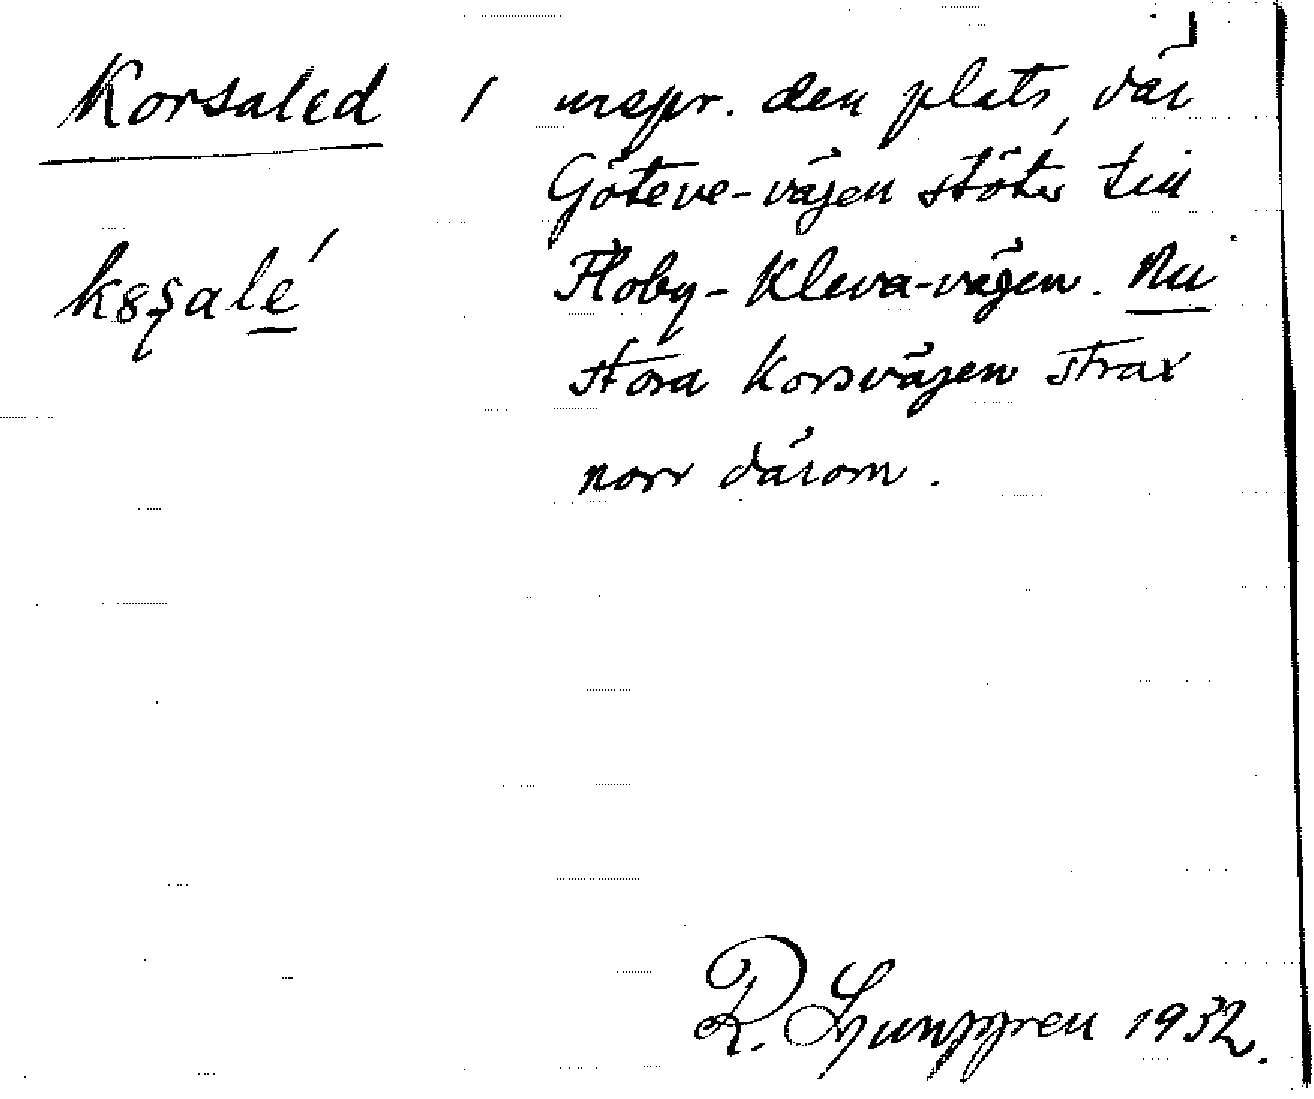 Korsaled / urspr. den plats, där
Göteve-vägen stöter till
Floby-Kleva-vägen. Nu
stora korsvägen strax
norr därom.
R. Ljunggren 1932.